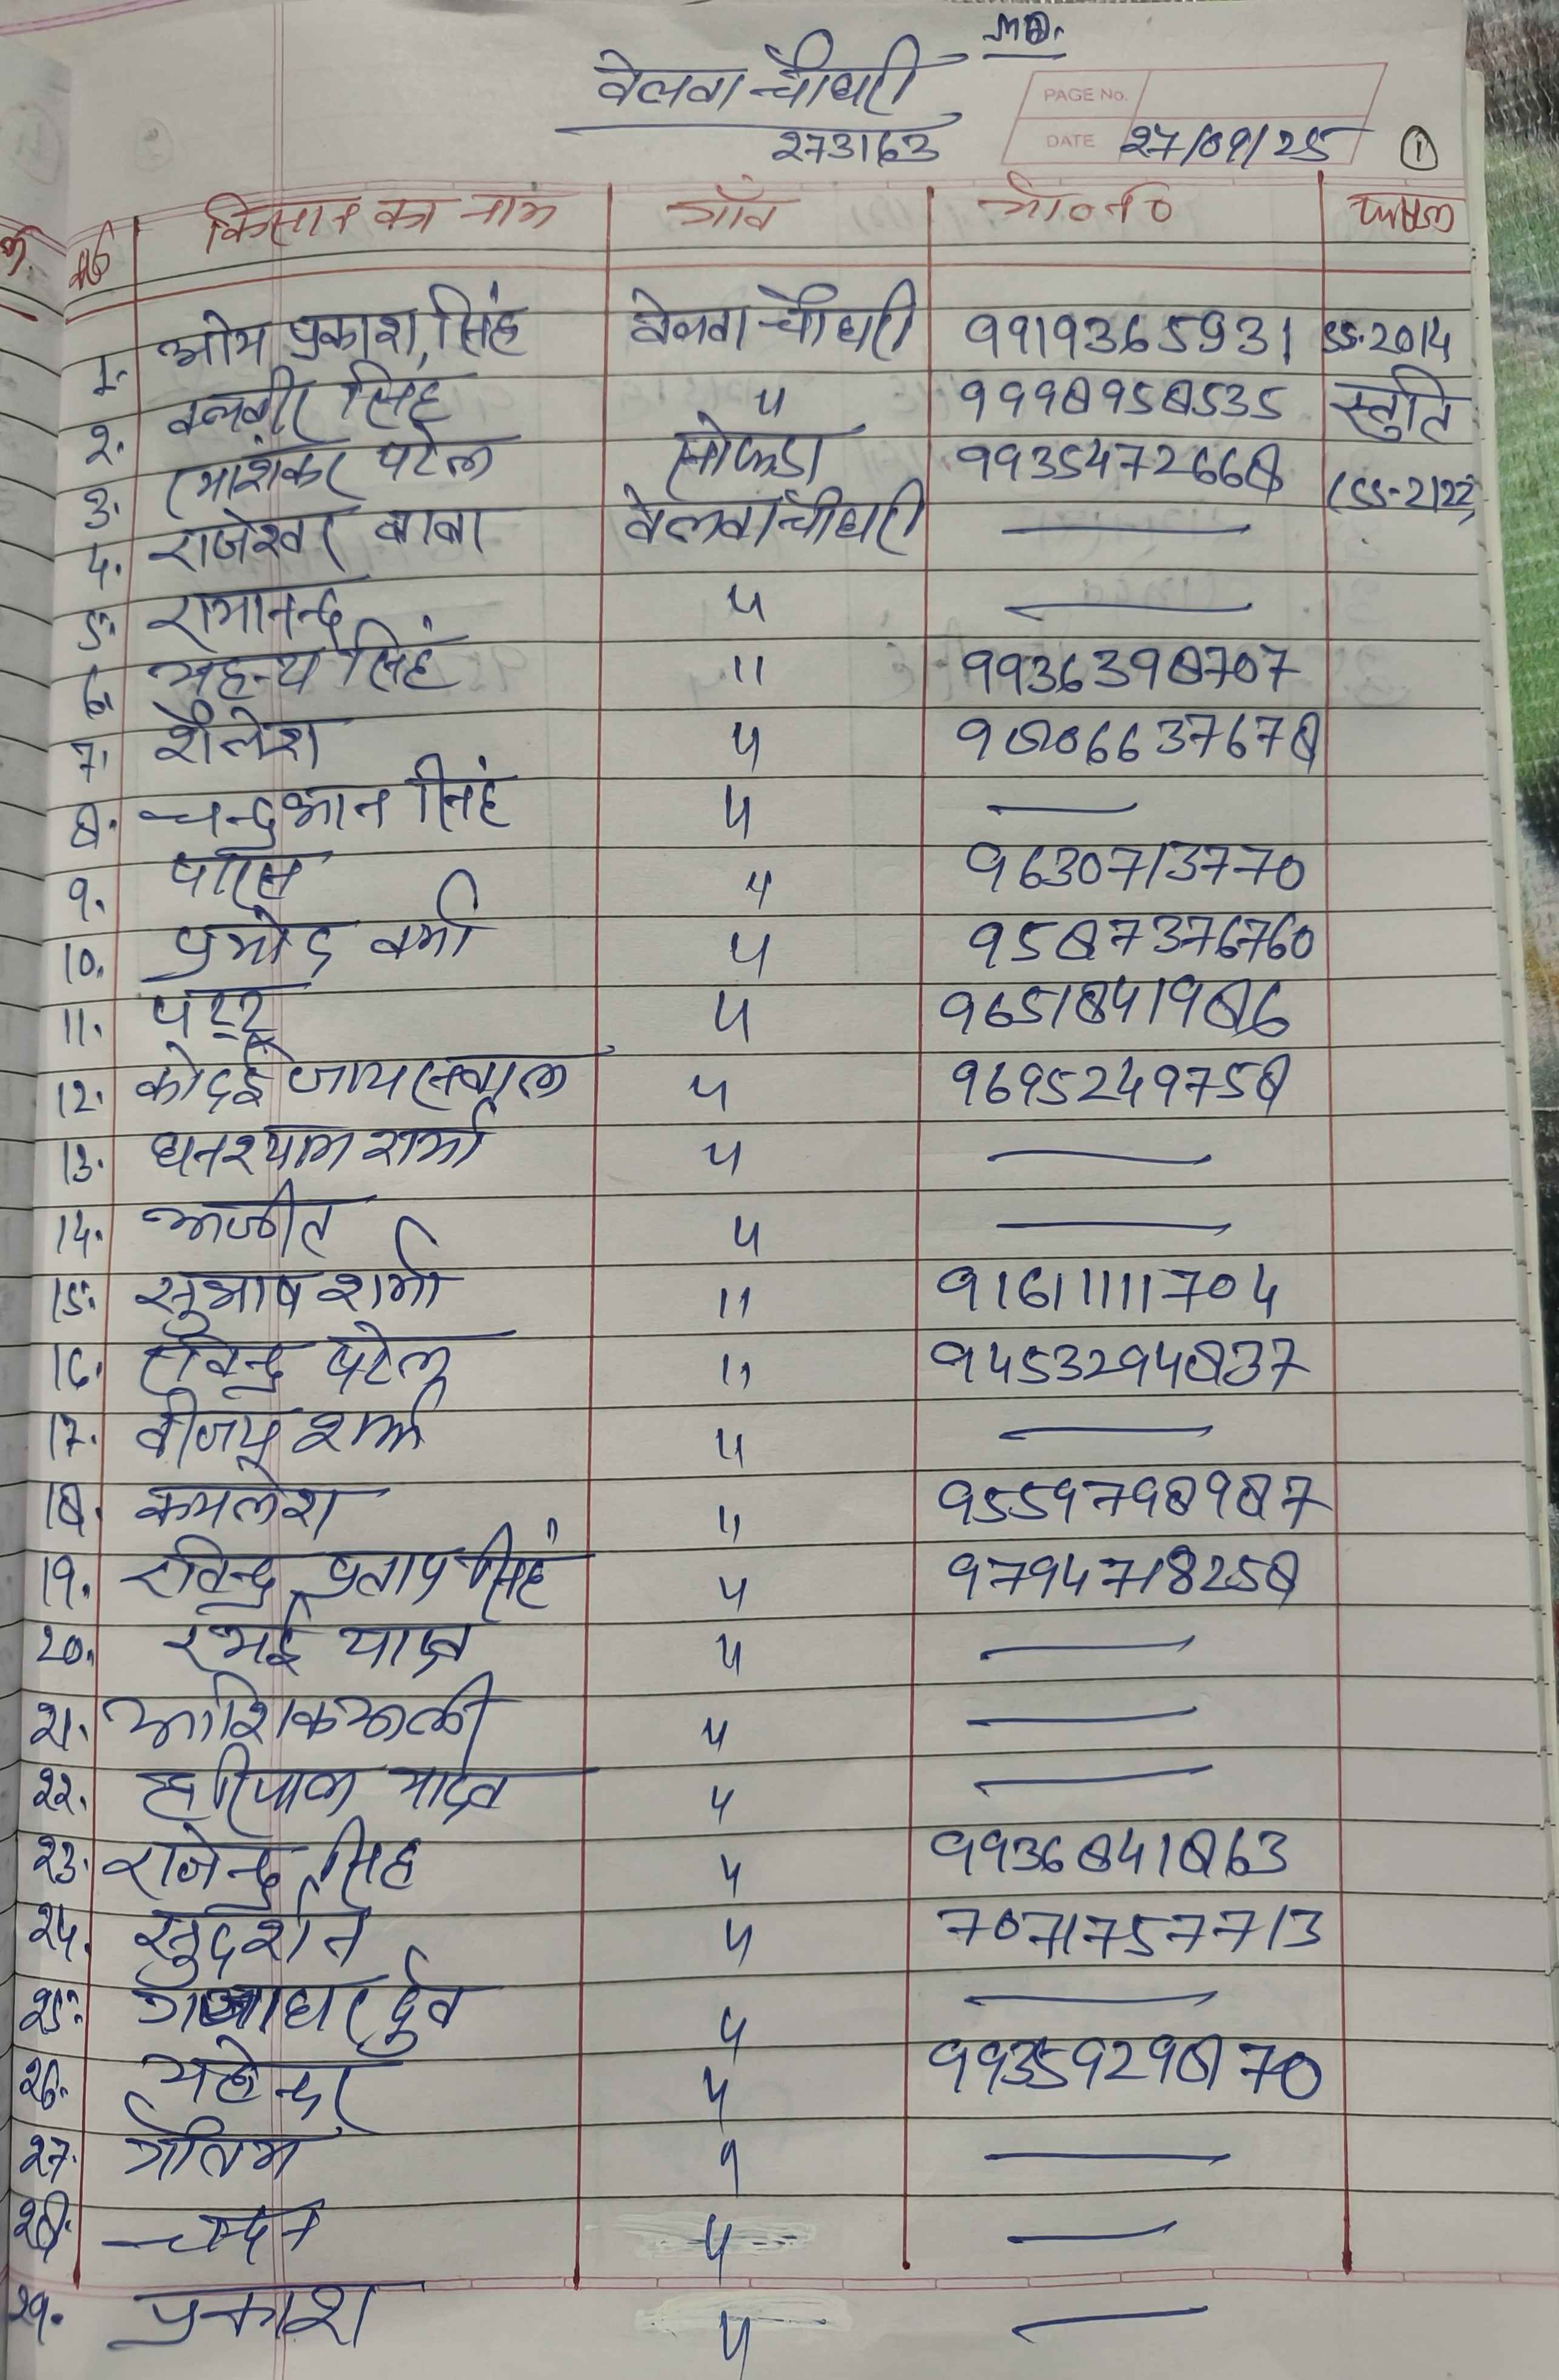 MD.
वेलवा चौधरी
273163
PAGE No.
DATE 27/09/25 ①
सं० किसान का नाम गाँव मो०नं० फसल
1. ओम प्रकाश सिंह वेलवा चौधरी 9919365931 SS-2014
2. बलबीर सिंह " 9998958535 स्तुति
3. रमाशंकर पटेल सोफडा 9935472668 (SS-2122)
4. राजेश्वर बाबा वेलवा चौधरी —
5. रामानन्द " —
6. महन्थ सिंह " 9936398707
7. शैलेश " 9806637678
8. चन्द्रभान सिंह " —
9. पारस " 9630713770
10. प्रमोद वर्मा " 9587376760
11. परदू " 9651841986
12. कोदई जायसवाल " 9695249758
13. घनश्याम शर्मा " —
14. अजीत " —
15. सुभाष शर्मा " 9161111704
16. रविन्द्र पटेल " 9453294837
17. वीजय शर्मा " —
18. कमलेश " 9559798987
19. रविन्द्र प्रताप सिंह " 9794718258
20. रमई यादव " —
21. आशिक अली " —
22. हरिपाल यादव " —
23. राजेन्द्र सिंह " 9936841863
24. सुदर्शन " 7071757713
25. गजाधर दुवे " —
26. महेन्दर " 9935929870
27. गौतम " —
28. चन्दन " —
29. प्रकाश " —